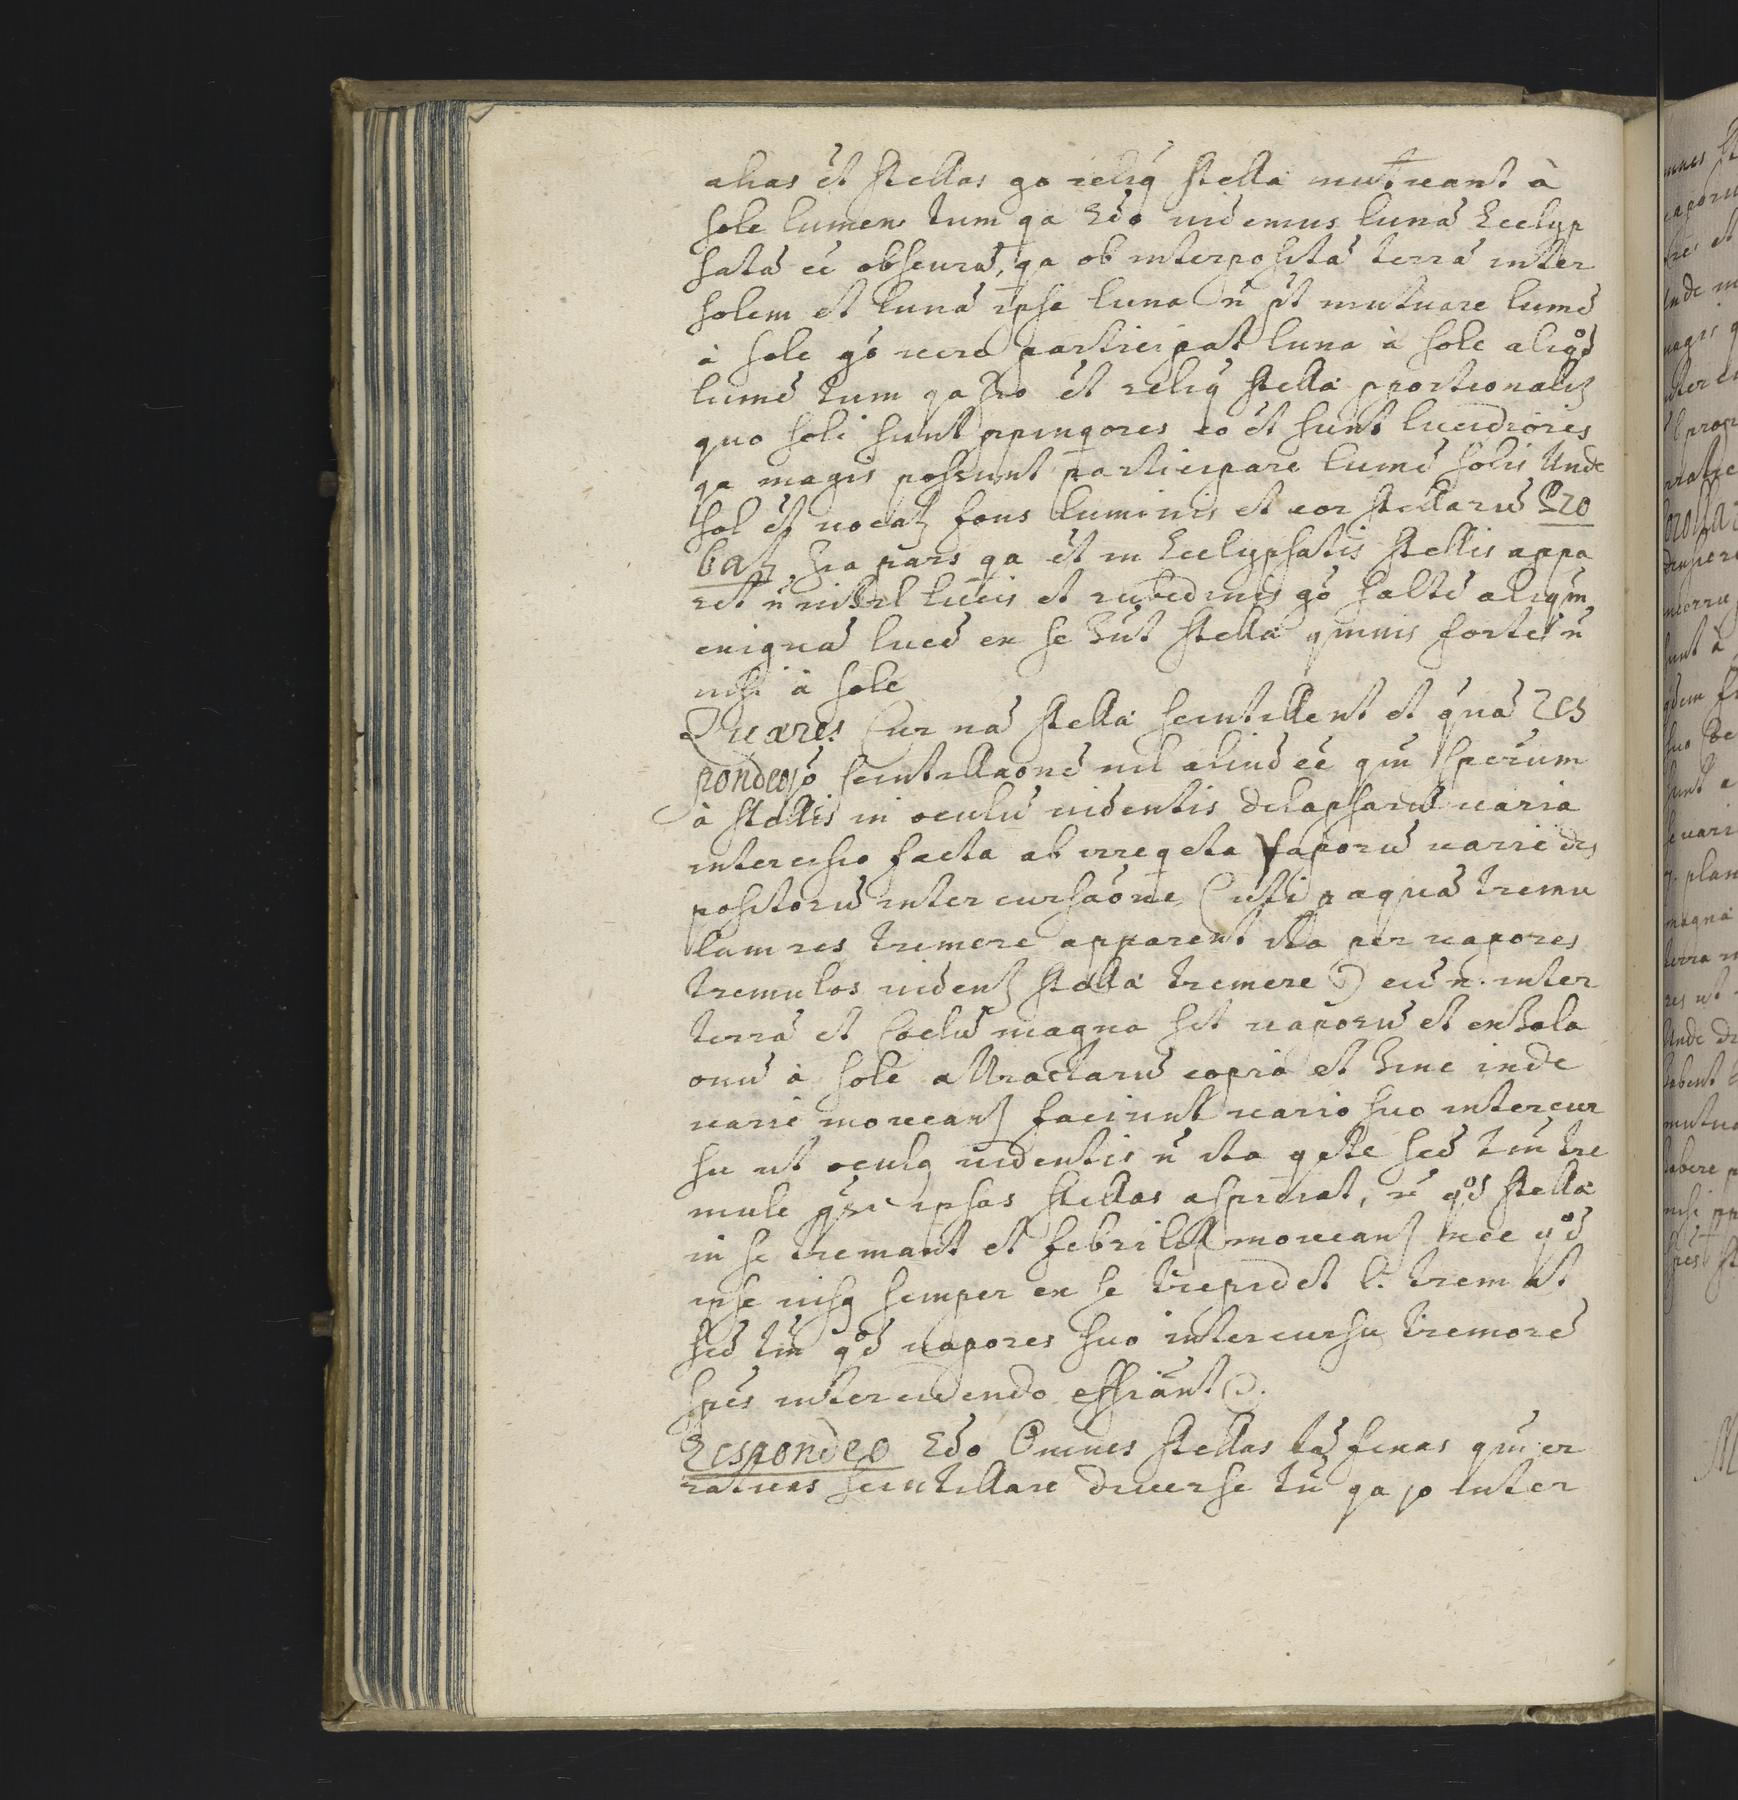 alias et stellas go reliq stellæ mutueant à
sole lumen tum qa 2do videmus lunã Ecclyp
satã eẽ obscurã, qa ob interpositã terrã inter
solem et lunã ipse luna ñ pt mutuare lumẽ
à sole gõ vere participat luna à sole aliqd
lumẽ tum qa 3io et reliq stellæ pportionaliz
quo soli sunt ppinqores eo et sunt lucidiores
qa magis possunt participare lumẽ solis Unde
sol et vocatz fons luminis et cor stellarũ Pro
batz 3ia pars qa et in Ecclypsatis stellis appa
ret ñ nihil lucis et rubedinis gõ saltẽ aliqm
exiguã lucẽ ex se hñt stellæ qmvis fortes ñ
nisi à sole
Quæres Cur nã stellæ scintillent et qnã Res
pondeo jo scintillaonẽ nil aliud eẽ qm sperum
à stellis in oculũ videntis delapsarũ varia
intercisio facta ab irreqeta vaporũ varie dis
positorũ intercursaõne (uti p aquã tremu
lam res tremere apparent ita per vapores
tremulos videntz stellæ tremere) cũ n. inter
terrã et Coelũ magna sit vaporũ et exhala
onũ à sole attractarũ copia et hinc inde
varie moveantz faciunt vario suo intercur
su ut oculq videntis ñ ita qete sed tm tre
mule qsi ipsas stellas aspiciat, ñ qd stellæ
in se tremant et febrilr moveantz nec qd
ipse visq semper ex se trepidet l. tremat
sed tm qd vapores suo intercursu tremorẽ
spes intercidendo efficiant).
Respondeo 2do Omnes stellas tã fixas qm er
raticas scintillare diverse tũ qa jo inter